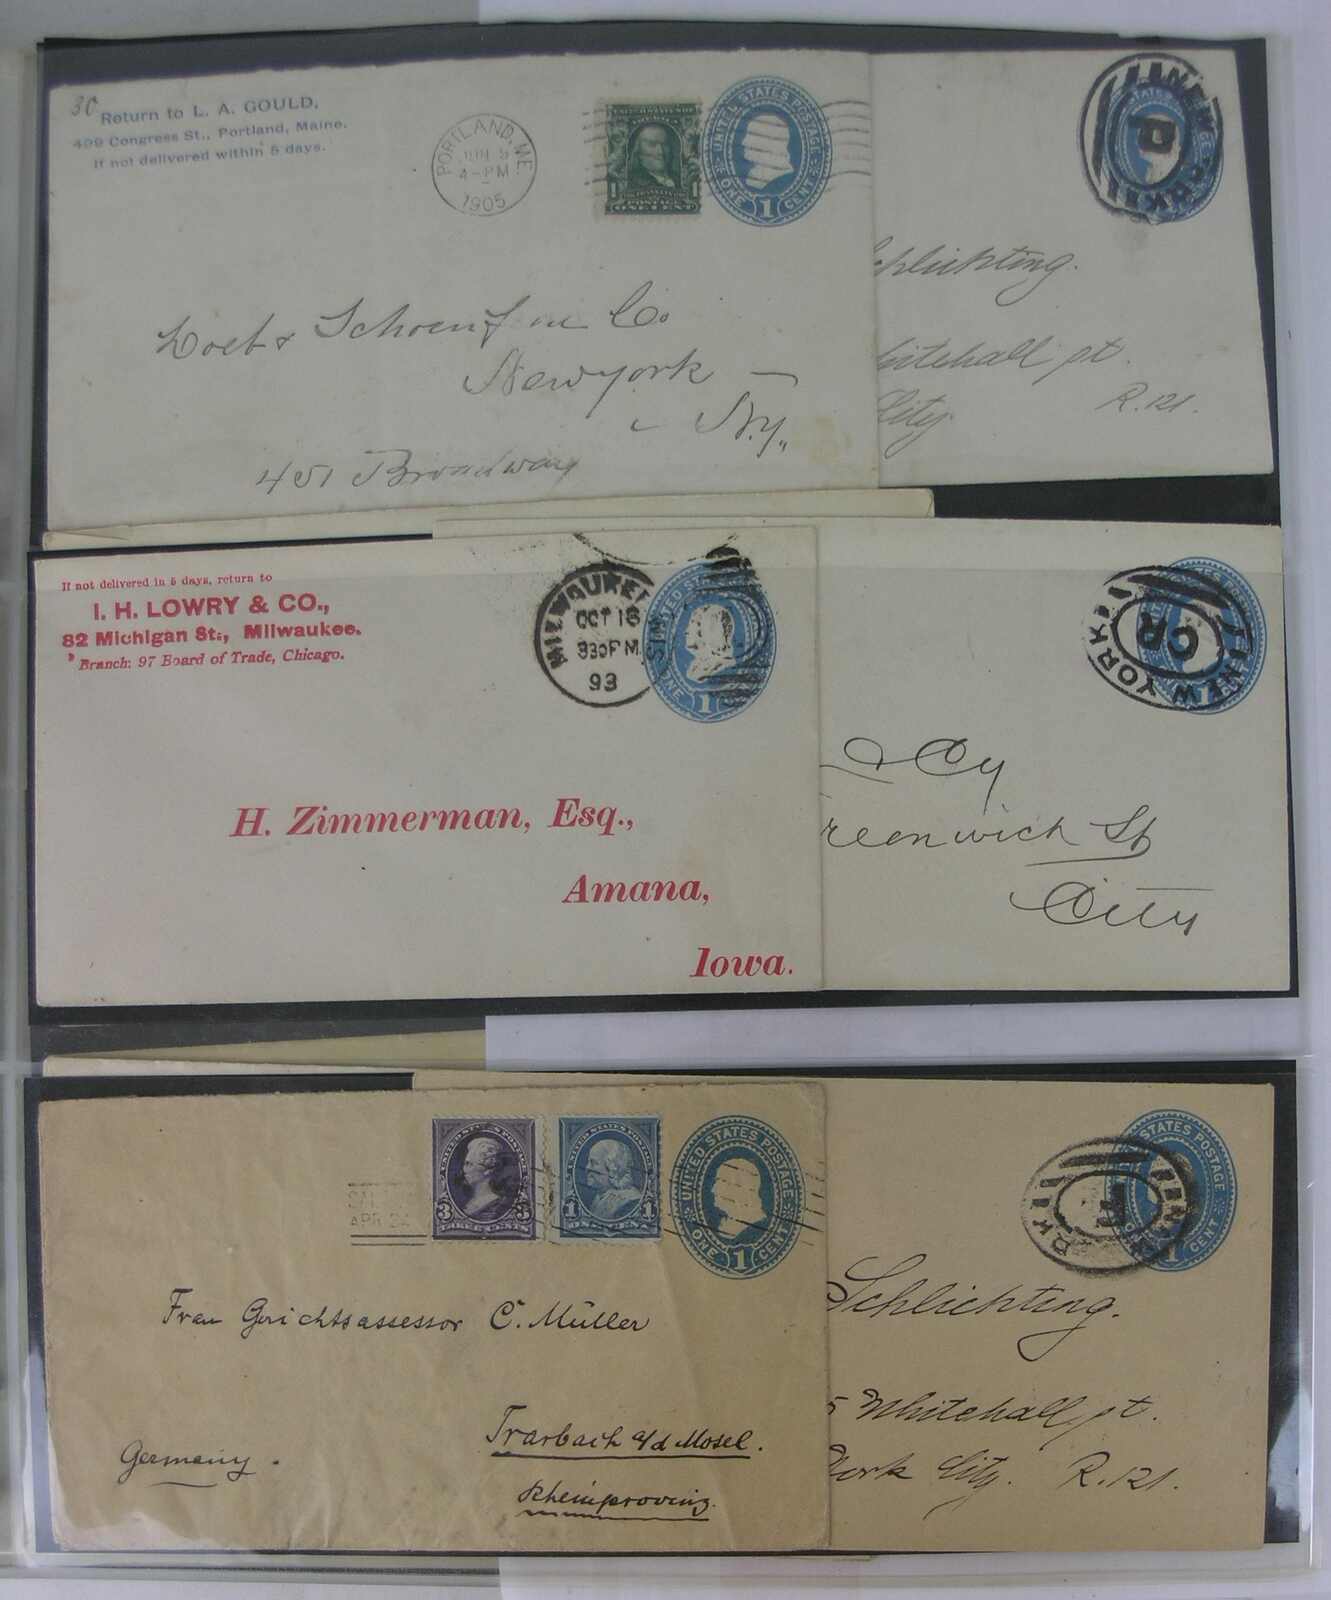 30
Return to L. A. GOULD,
499 Congress St., Portland, Maine.
If not delivered within 5 days.
PORTLAND, ME.
JUN 9
4-PM
1905
1 1
POSTAGE
ONE CENT
UNITED STATES POSTAGE
ONE 1 CENT
Loeb & Schoenf
Co.
Newyork
N.Y.,
451 Broadway
NEW YORK
D
Schlichting.
Whitehall St.
City.
R. 121.
If not delivered in 5 days, return to
I. H. LOWRY & CO.,
82 Michigan St., Milwaukee.
Branch: 97 Board of Trade, Chicago.
MILWAUKEE
WIS
OCT 16
830PM
93
ONE 1
H. Zimmerman, Esq.,
Amana,
Iowa.
NEW YORK
CR
1
& Cy
Greenwich St
City
APR 24
UNITED STATES POSTAGE
3 3
THREE CENTS
1 1
ONE CENT
UNITED STATES POSTAGE
ONE 1 CENT
Frau Gerichtsassessor C. Müller
Trarbach a/d Mosel.
Germany.
Rheinprovinz.
STATES POSTAGE
1 CENT
F
Schlichting.
5 Whitehall St.
York City. R. 121.